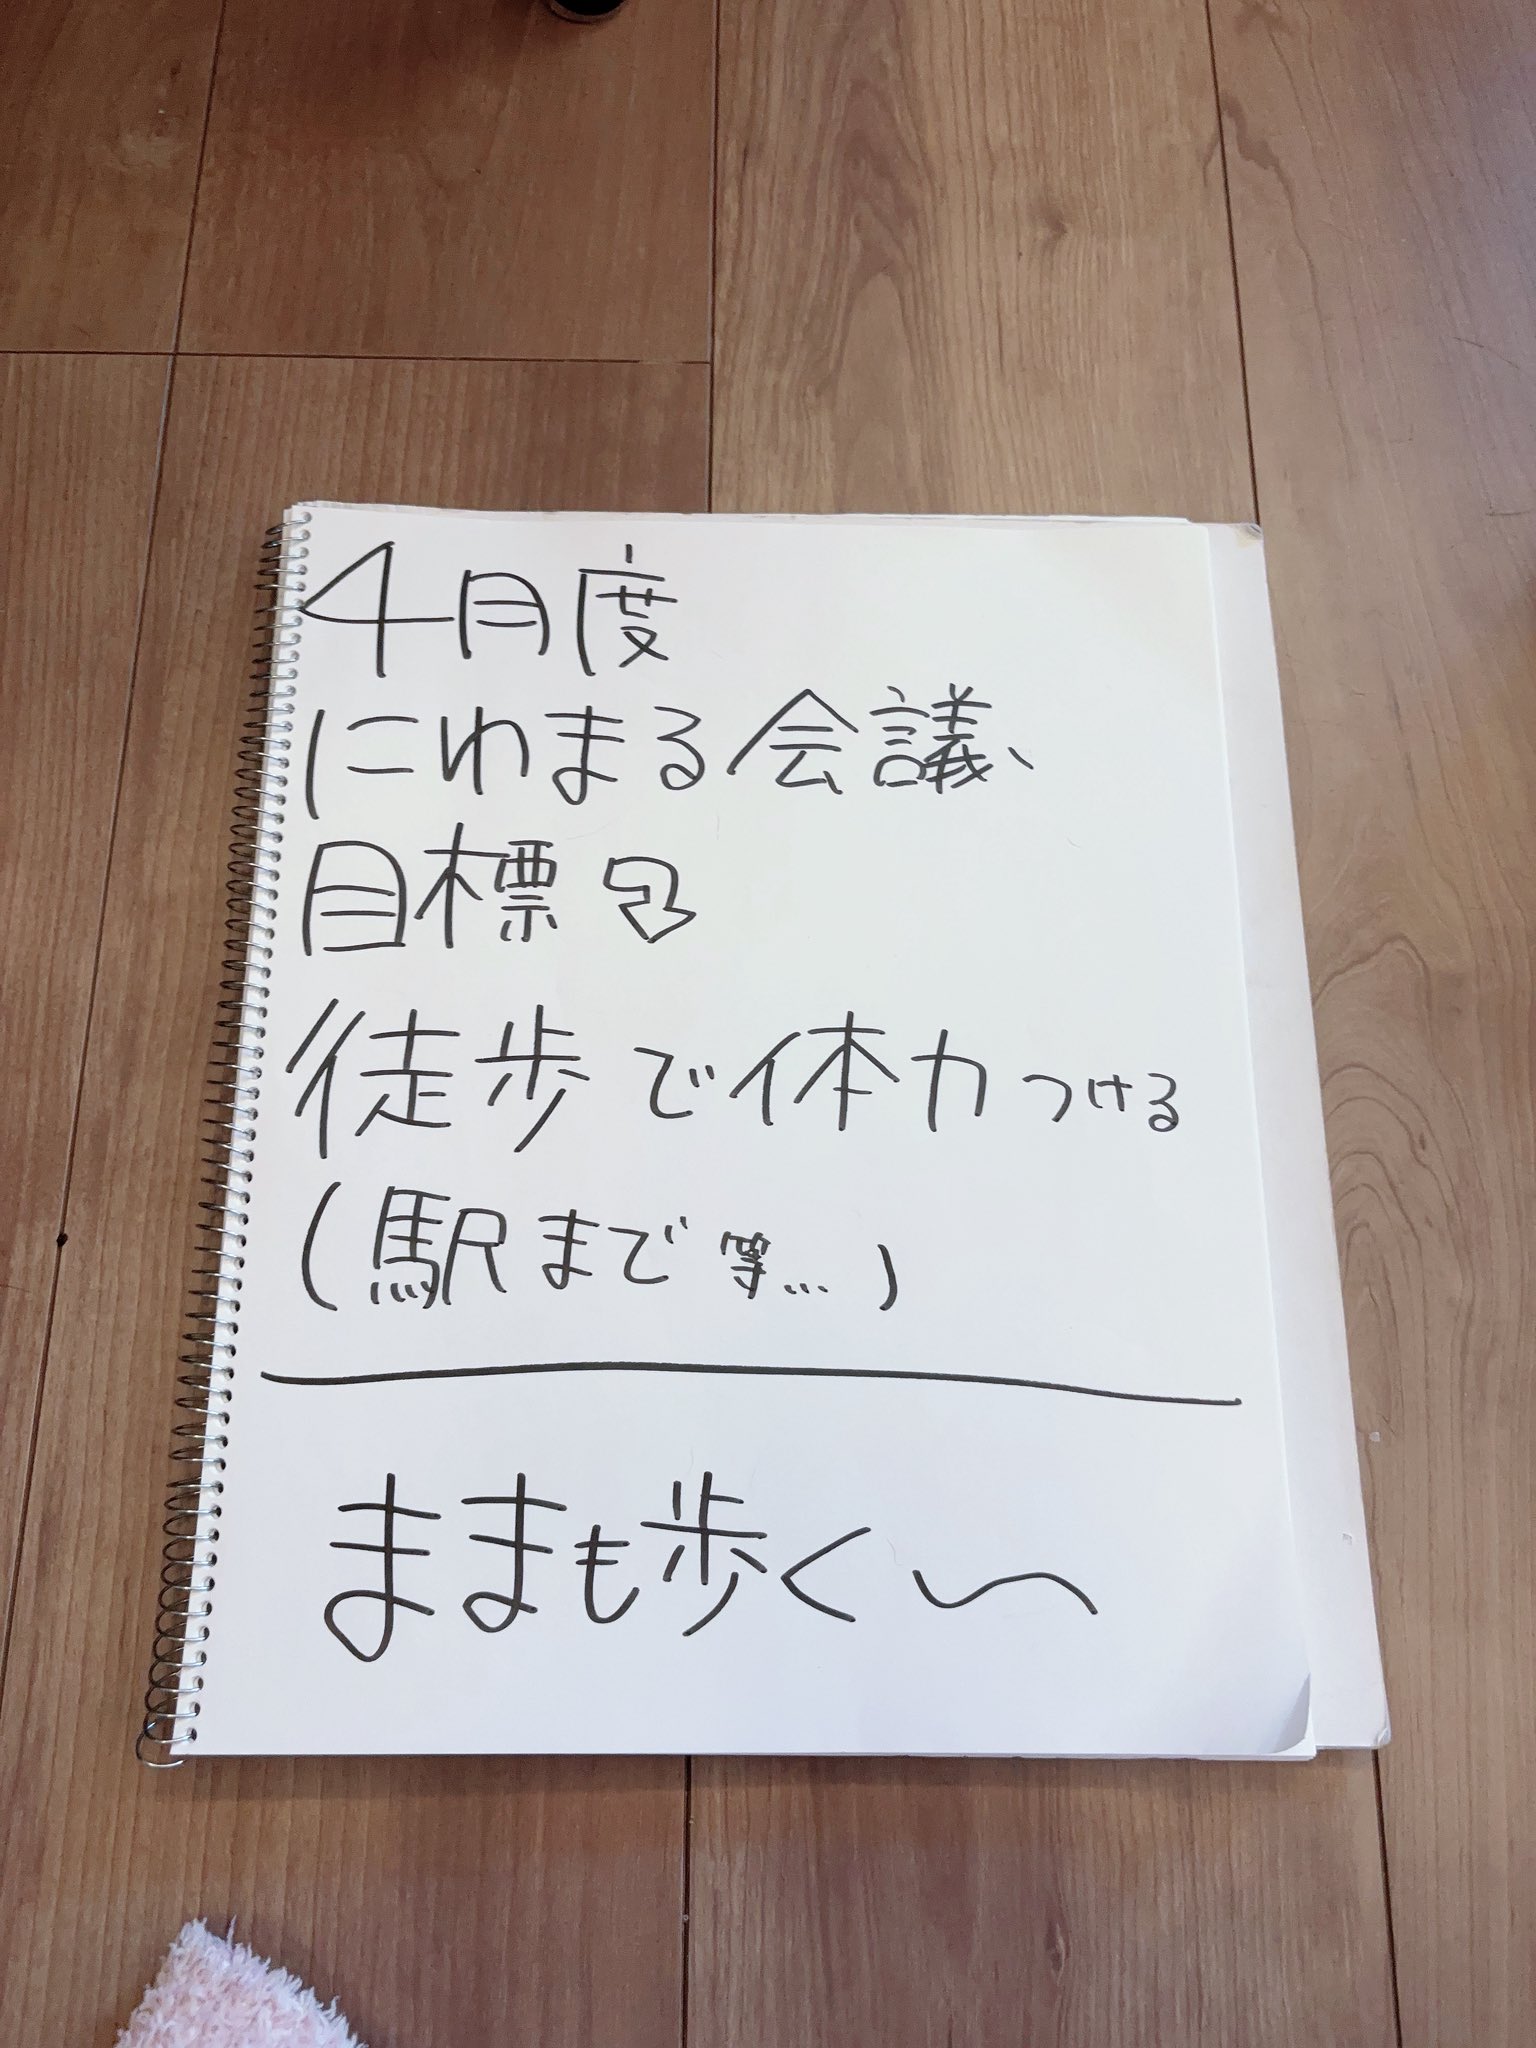 4月度
にわまる会議、
目標
徒歩で体力つける
(駅まで等…)
ままも歩く〜